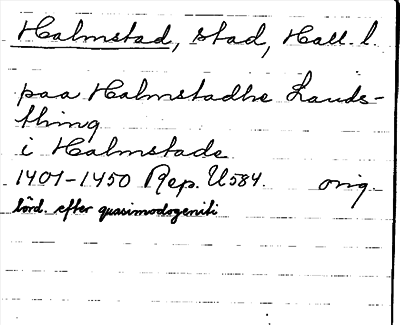 Halmstad, stad, Hall. l.
paa Halmstadhe Lands-
thing
i Halmstade
1401-1450 Rep. II 584. orig.
lörd. efter quasimodogeniti